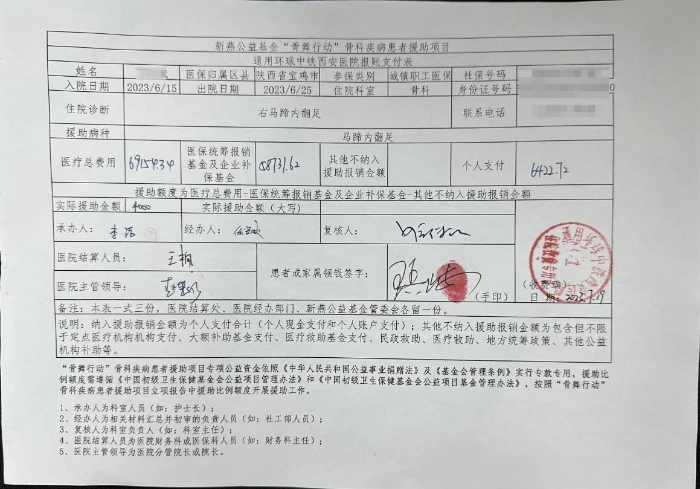 新燕公益基金“骨舞行动”骨科疾病患者援助项目
通用环球中铁西安医院报账支付表
姓名 医保归属区县 陕西省宝鸡市 参保类别 城镇职工医保 社保号码
入院日期 2023/6/15 出院日期 2023/6/25 住院科室 骨科 身份证号码
住院诊断 右马蹄内翻足 联系电话
援助病种 马蹄内翻足
医疗总费用 69154.34 医保统筹报销基金及企业补保基金 58731.62 其他不纳入援助报销金额 个人支付 6422.72
援助额度为医疗总费用-医保统筹报销基金及企业补保基金-其他不纳入援助报销金额
实际援助金额 4000 实际援助金额(大写)
承办人: 经办人: 复核人:
医院结算人员: 王枫 患者或家属领钱签字: (手印) (收费章)
医院主管领导: 日期: 2023.7.19
备注:本表一式三份,医院结算处、医院经办部门、新燕公益基金管委会各留一份。
说明:纳入援助报销金额为个人支付合计(个人现金支付和个人账户支付);其他不纳入援助报销金额为包含但不限
于定点医疗机构机构支付、大额补助基金支付、医疗救助基金支付、民政救助、医疗救助、地方统筹政策、其他公益
机构补助等。
“骨舞行动”骨科疾病患者援助项目专项公益资金依照《中华人民共和国公益事业捐赠法》及《基金会管理条例》实行专款专用,援助比
例额度需遵循《中国初级卫生保健基金会公益项目管理办法》和《中国初级卫生保健基金会公益项目基金管理办法》,按照“骨舞行动”
骨科疾病患者援助项目立项报告中援助比例额度开展援助工作。
1、承办人为科室人员(如:护士长);
2、经办人为相关材料汇总并初审的负责人员(如:社工部人员);
3、复核人为科室负责人(如:科室主任);
4、医院结算人员为医院财务科或医保科人员(如:财务科主任);
5、医院主管领导为医院分管院长或院长。